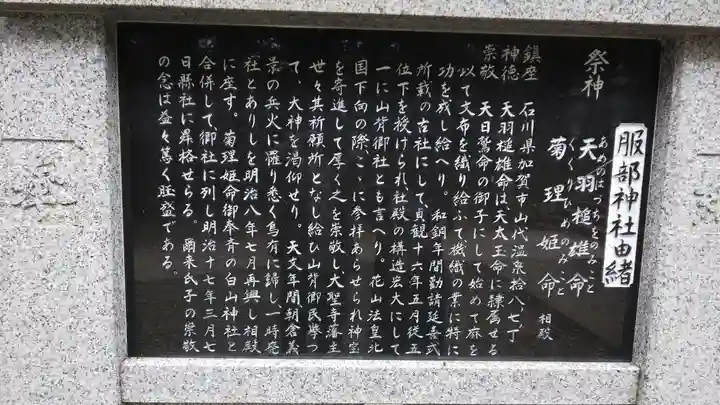 服部神社由緒
祭神
あめのはづちをのみこと
天羽槌雄命
くくりひめのみこと
菊理姫命 相殿
鎮座 石川県加賀市山代温泉拾八七丁
神徳 天羽槌雄命は天太玉命に隷属せる
崇敬 天日鷲命の御子にして始めて麻を
以て文布を織り給ふて機織の業に特に
功を成し給へり。 和銅年間勧請延喜式
所載の古社にして貞観十六年五月従五
位下を授けられ、社殿の構造宏大にして
一に山背御社とも言へり。花山法皇北
国下向の際こゝに参拝あらせられ神宝
を寄進して厚く之を崇敬し大聖寺藩主
世々其祈願所となし給ひ山背御民挙つ
て、大神を渇仰せり。 天文年間朝倉義
景の兵火に罹り悉く烏有に歸し一時廃
社とありしを明治八年七月再興し相殿
に座す。菊理姫命御奉斉の白山神社と
合併して御社に列し明治十七年三月七
日縣社に昇格せらる。爾来氏子の崇敬
の念は益々篤く旺盛である。